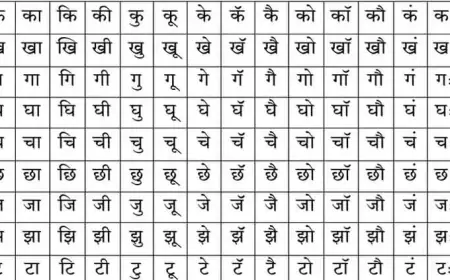 का कि की कु कू के कॅ कै को कॉ कौ कं
खा खि खी खु खू खे खॅ खै खो खॉ खौ खं
गा गि गी गु गू गे गॅ गै गो गॉ गौ गं गः
घा घि घी घु घू घे घॅ घै घो घॉ घौ घं
चा चि ची चु चू चे चॅ चै चो चॉ चौ चं
छा छि छी छु छू छे छॅ छै छो छॉ छौ छं
जा जि जी जु जू जे जॅ जै जो जॉ जौ जं
झा झि झी झु झू झे झॅ झै झो झॉ झौ झं
टा टि टी टु टू टे टॅ टै टो टॉ टौ टं टः